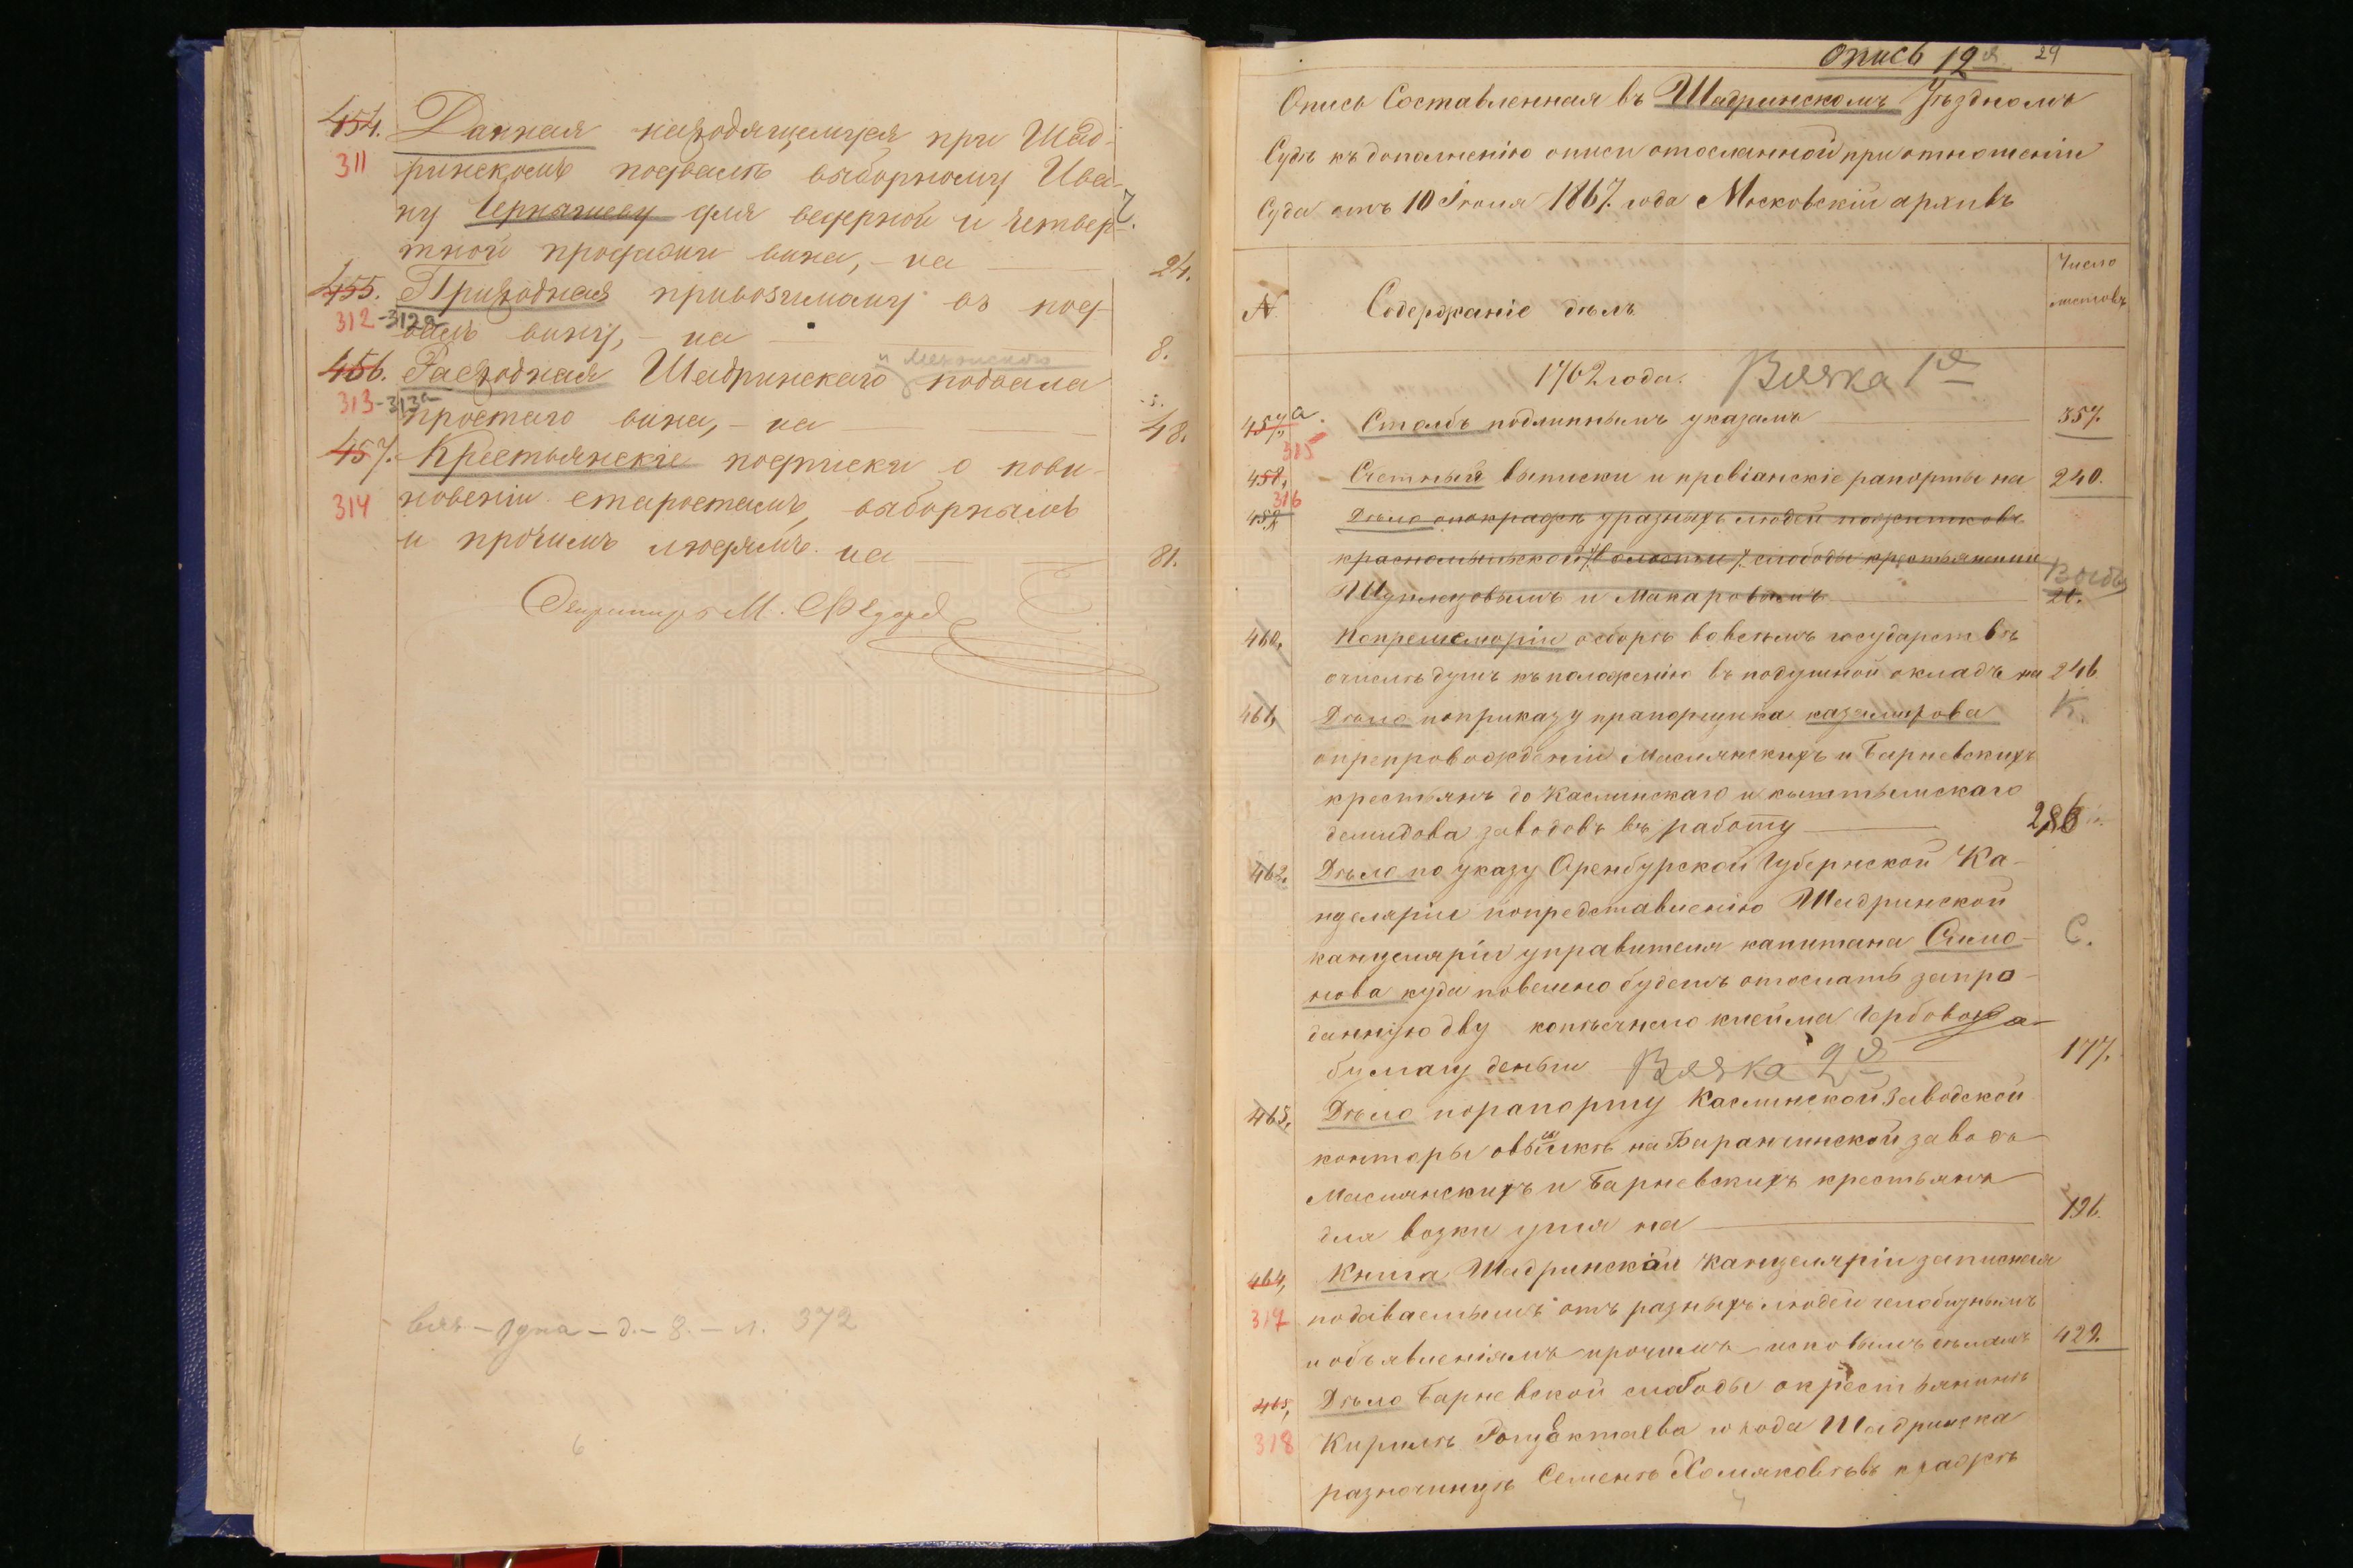 454. Данная находящемуся при Шад-
311 ринскомъ подвалѣ выборному Ива-
ну Чернышеву для ведерной и четвер-
тной продажи вина, – на 24.
455. Приходная привозимому въ под-
312-312а валъ вину, – на 8.
и
456. Расходная Шадринскаго подвала
313-313а простаго вина, – на 48.
457. Крестьянскіе подписки о пови-
314 новеніи старостамъ, выборнымъ
и прочимъ людямъ. на 81.
М.
вяз – 1 – д. – 8. – л. 372
6
Опись 19я 29
Опись Составленная въ Шадринскомъ Уѣздномъ
Судѣ къ дополненію описи отосланной при отношеніи
Суда отъ 10 Іюля 1867. года Московскій архивъ
N Содержаніе дѣлъ Число листовъ
1762 года. Вязка 1я
457, а. Столбъ подлиннымъ указамъ 357.
315
458, Счетный выписки и провіанскіе рапорты на 240.
316
Дѣло о покражѣ у разныхъ людей пожитковъ
красномыльской слободы крестьянами
и Макаровымъ 21.
460, о сборѣ во всѣмъ государствѣ
о числѣ душъ къ положенію въ подушной окладъ на 246
461, Дѣло по приказу прапорщика казамарова К.
опрепровожденіи Маслянскихъ и Барневскихъ
крестьянъ до Каслинскаго и кыштымскаго
демидова заводовъ въ работу 286
462. Дѣло по указу Оренбурской Губернской Ка-
нцеляріи попредставленію Шадринской
канцеляріи управителя капитана С.
нова куда повелено будетъ отослать запро-
данную дву копѣечнаго клейма гербовова
бумагу деньги Вязка 2я 177.
463, Дѣло порапорту Каслинской Заводской
конторы овысылкѣ на Баранчинской заводъ
Маслянскихъ и Барневскихъ крестьянъ
для возки угля на 126.
464, Книга Шадринской Канцеляріи записная
317 подаваемымъ отъ разныхъ людей челобизнымъ
и объявленіямъ прочимъ исковымъ дѣламъ 429.
465, Дѣло Барневской слободы окрестьянинѣ
318 Кирилѣ города Шадринска
разночинцѣ Семенѣ Хомяковѣвъ кражѣ